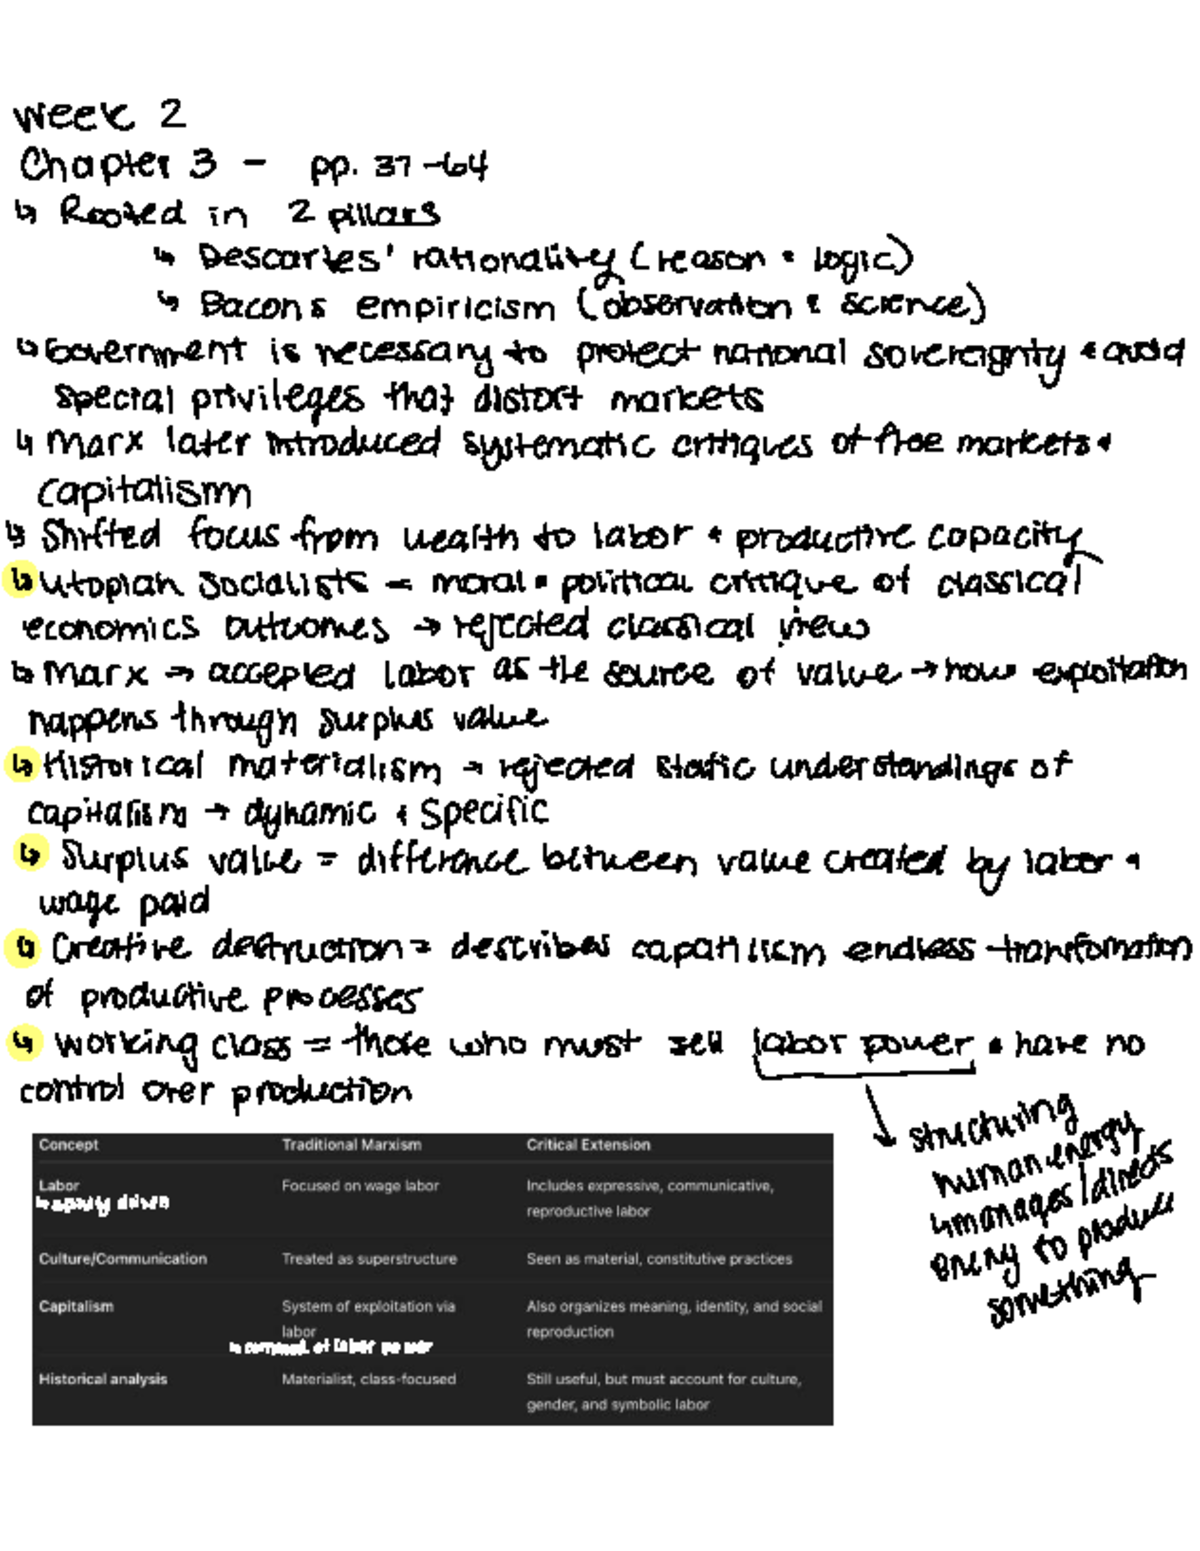 Week 2
Chapter 3 - pp. 37-64
↳ Rooted in 2 pillars
↳ Descartes' rationality (reason & logic)
↳ Bacons empiricism (observation & science)
↳ Government is necessary to protect national sovereignty & avoid
special privileges that distort markets
↳ Marx later introduced systematic critiques of free markets &
capitalism
↳ Shifted focus from wealth to labor & productive capacity
↳ Utopian Socialists = moral & political critique of classical
economics outcomes → rejected classical view
↳ Marx → accepted labor as the source of value → how exploitation
happens through surplus value
↳ Historical materialism → rejected static understandings of
capitalism → dynamic & specific
↳ Surplus value = difference between value created by labor &
wage paid
↳ Creative destruction = describes capatilism endless transfomation
of productive processes
↳ Working class = those who must sell labor power & have no
control over production
structuring
human energy
↳ manages/directs
to produce
something
Concept Traditional Marxism Critical Extension
Labor Focused on wage labor Includes expressive, communicative,
reproductive labor
driven
Culture/Communication Treated as superstructure Seen as material, constitutive practices
Capitalism System of exploitation via Also organizes meaning, identity, and social
labor reproduction
↳ of labor power
Historical analysis Materialist, class-focused Still useful, but must account for culture,
gender, and symbolic labor